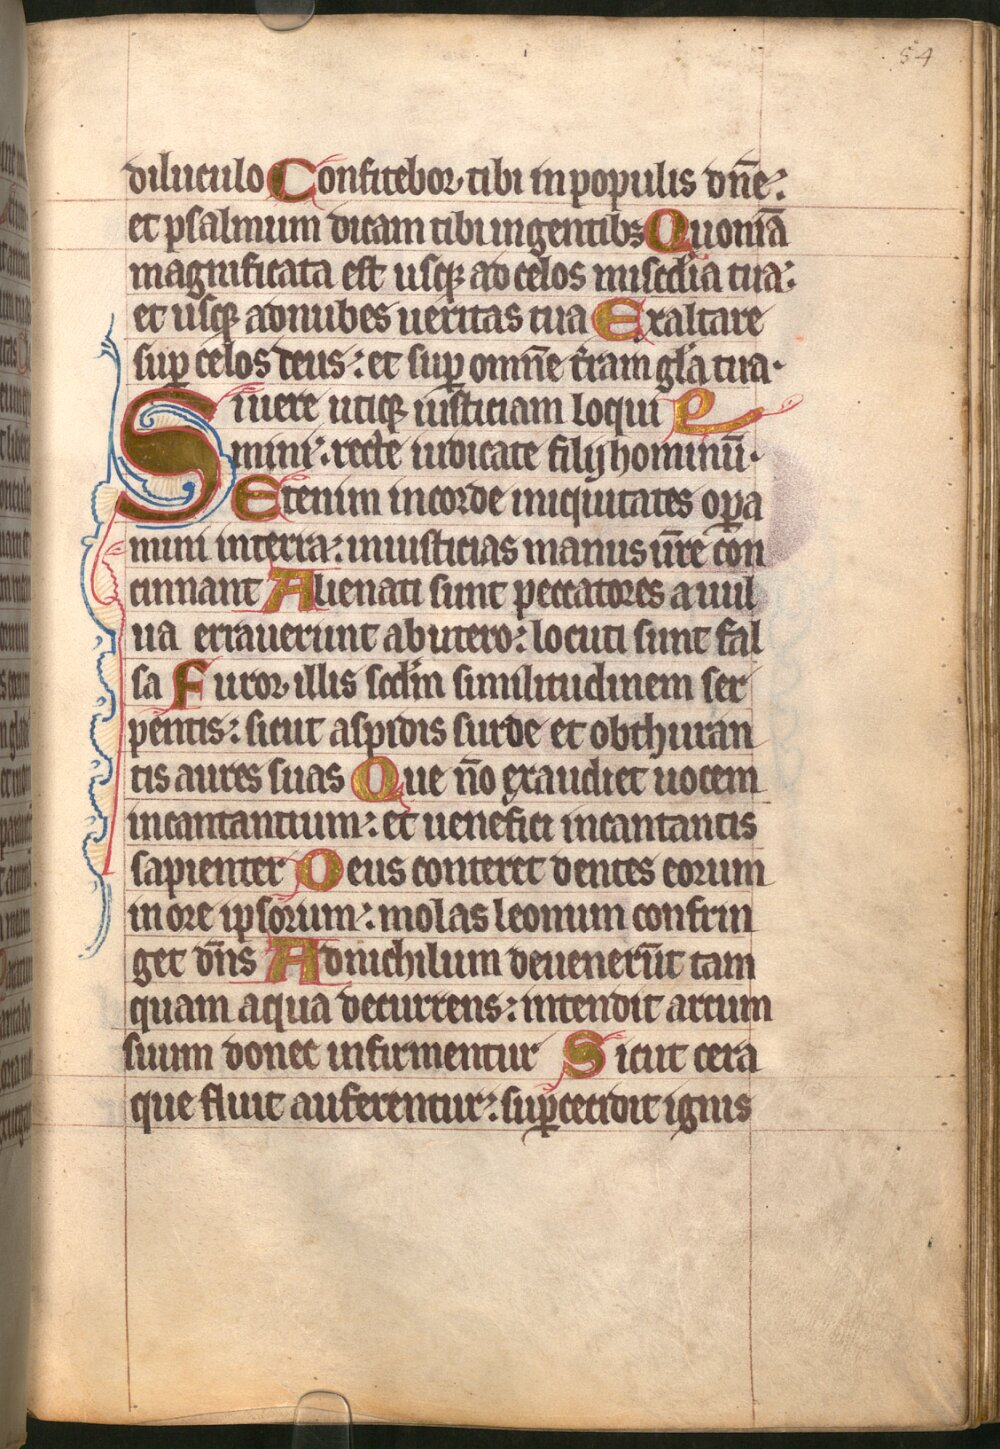 54
diluculo Confitebor tibi in populis dn̄e:
et psalmum dicam tibi in gentibꝫ Quoniā
magnificata est usqꝫ ad celos mis̄c̄dia tua:
et usqꝫ ad nubes ueritas tua Exaltare
suꝑ celos deus: et suꝑ omn̄e t̄ram gl̄a tua.
Si uere utiqꝫ iusticiam loqui
mini: recte iudicate filij hominū.
Etenim in corde iniquitates oꝑa
mini in terra: iniusticias manus ur̄e con
cinnant Alienati sunt peccatores a uul
ua errauerunt ab utero: locuti sunt fal
sa Furor illis scdm̄ similitudinem ser
pentis: sicut aspidis surde et obthuran
tis aures suas Que nō exaudiet uocem
incantantium: et uenefici incantantis
sapienter Deus conteret dentes eorum
in ore ipsorum: molas leonum confrin
get dn̄s Ad nichilum deuenerūt tam
quam aqua decurrens: intendit arcum
suum donec infirmentur Sicut cera
que fluit auferentur: suꝑcecidit ignis